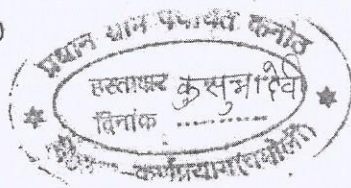 प्रधान ग्राम पंचायत कनोठ
हस्ताक्षर कुसुमा देवी
दिनांक ..........
कर्णप्रयाग (चमोली)